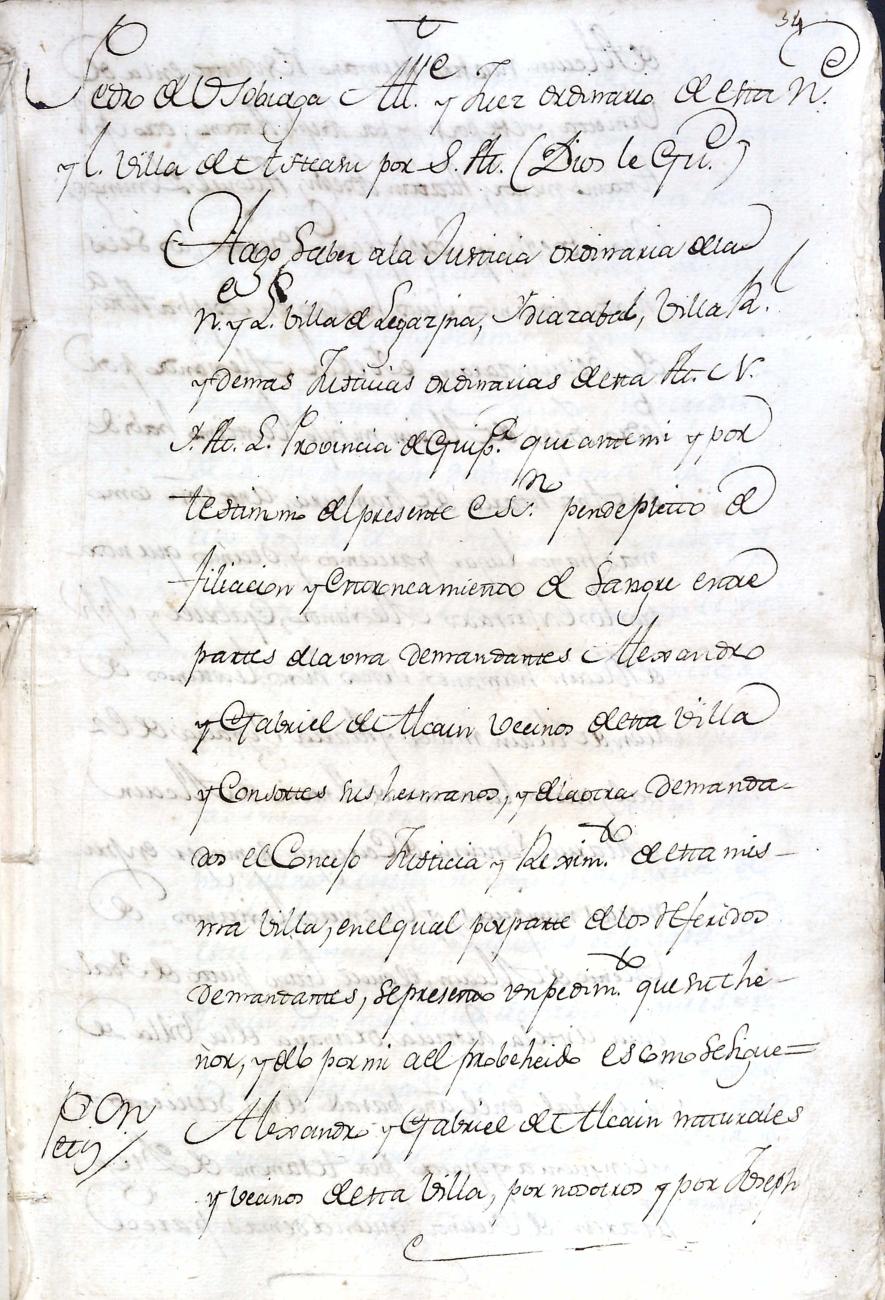 34
Pedro de Usobiaga Alle. y Juez ordinario de esta N.e
y L. Villa de Asteasu por S. M. (Dios le Gu.e)
Hago Saber ala Justicia ordinaria dela
N.e y L. Villa de Legazpia, Ydiazabal, Villa R.l
y demas Justicias ordinarias de esta M. N.
y M. L. Provincia de Guip.a que ante mi y por
testimnio del presente Essno. pende pleito de
filiacion y Entroncamiento de Sangre entre
partes dela vna Demandantes Alexandro
y Gabriel de Alcain Vecinos de esta Villa
y Consortes sus hermanos, y dela otra Demanda-
dos el Concejo Justicia y Reximto. de esta mis-
ma Villa, en el qual por parte de los Referidos
Demandantes, se presento vn pedimto. que su the-
nor, y delo por mi a el probeheido es como se sigue=
Peti
on
Alexandro y Gabriel de Alcain naturales
y vecinos de esta Villa, por nosotros y por Joseph